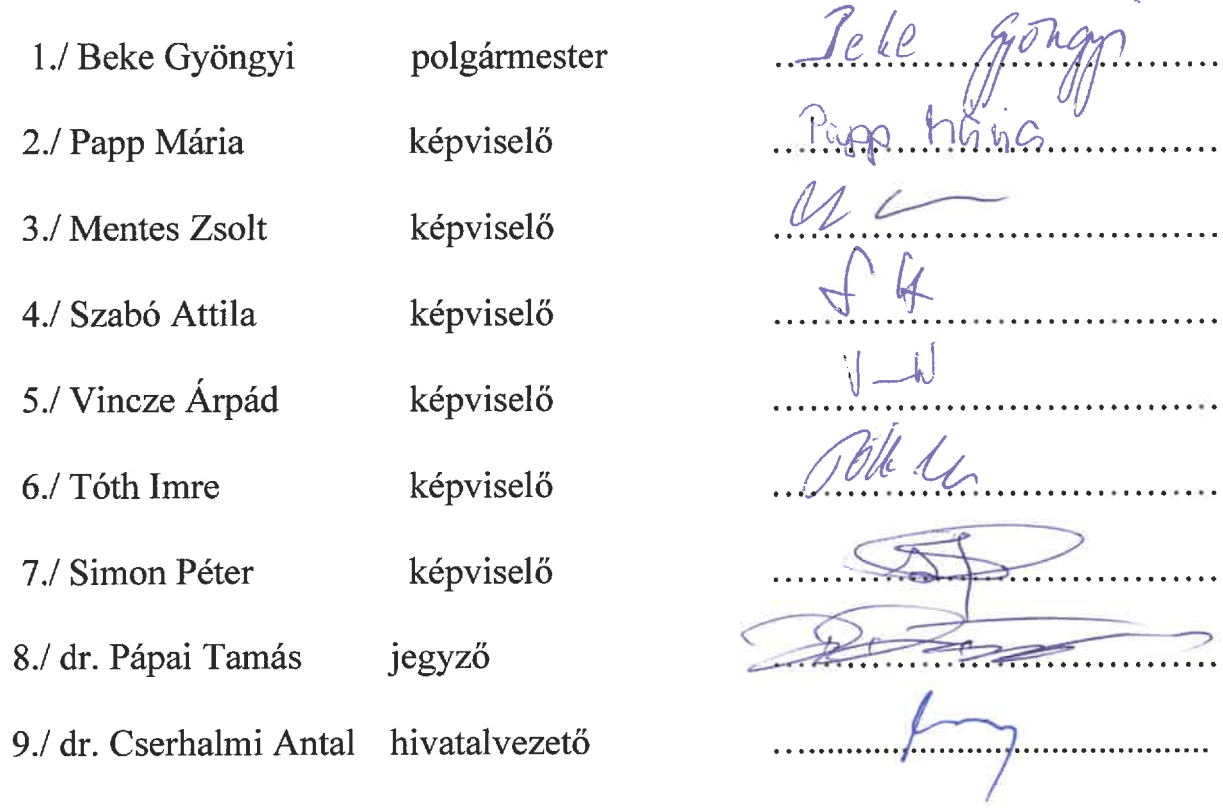 1./ Beke Gyöngyi polgármester Beke Gyöngyi
2./ Papp Mária képviselő Papp Mária
3./ Mentes Zsolt képviselő
4./ Szabó Attila képviselő
5./ Vincze Árpád képviselő
6./ Tóth Imre képviselő Tóth
7./ Simon Péter képviselő
8./ dr. Pápai Tamás jegyző
9./ dr. Cserhalmi Antal hivatalvezető